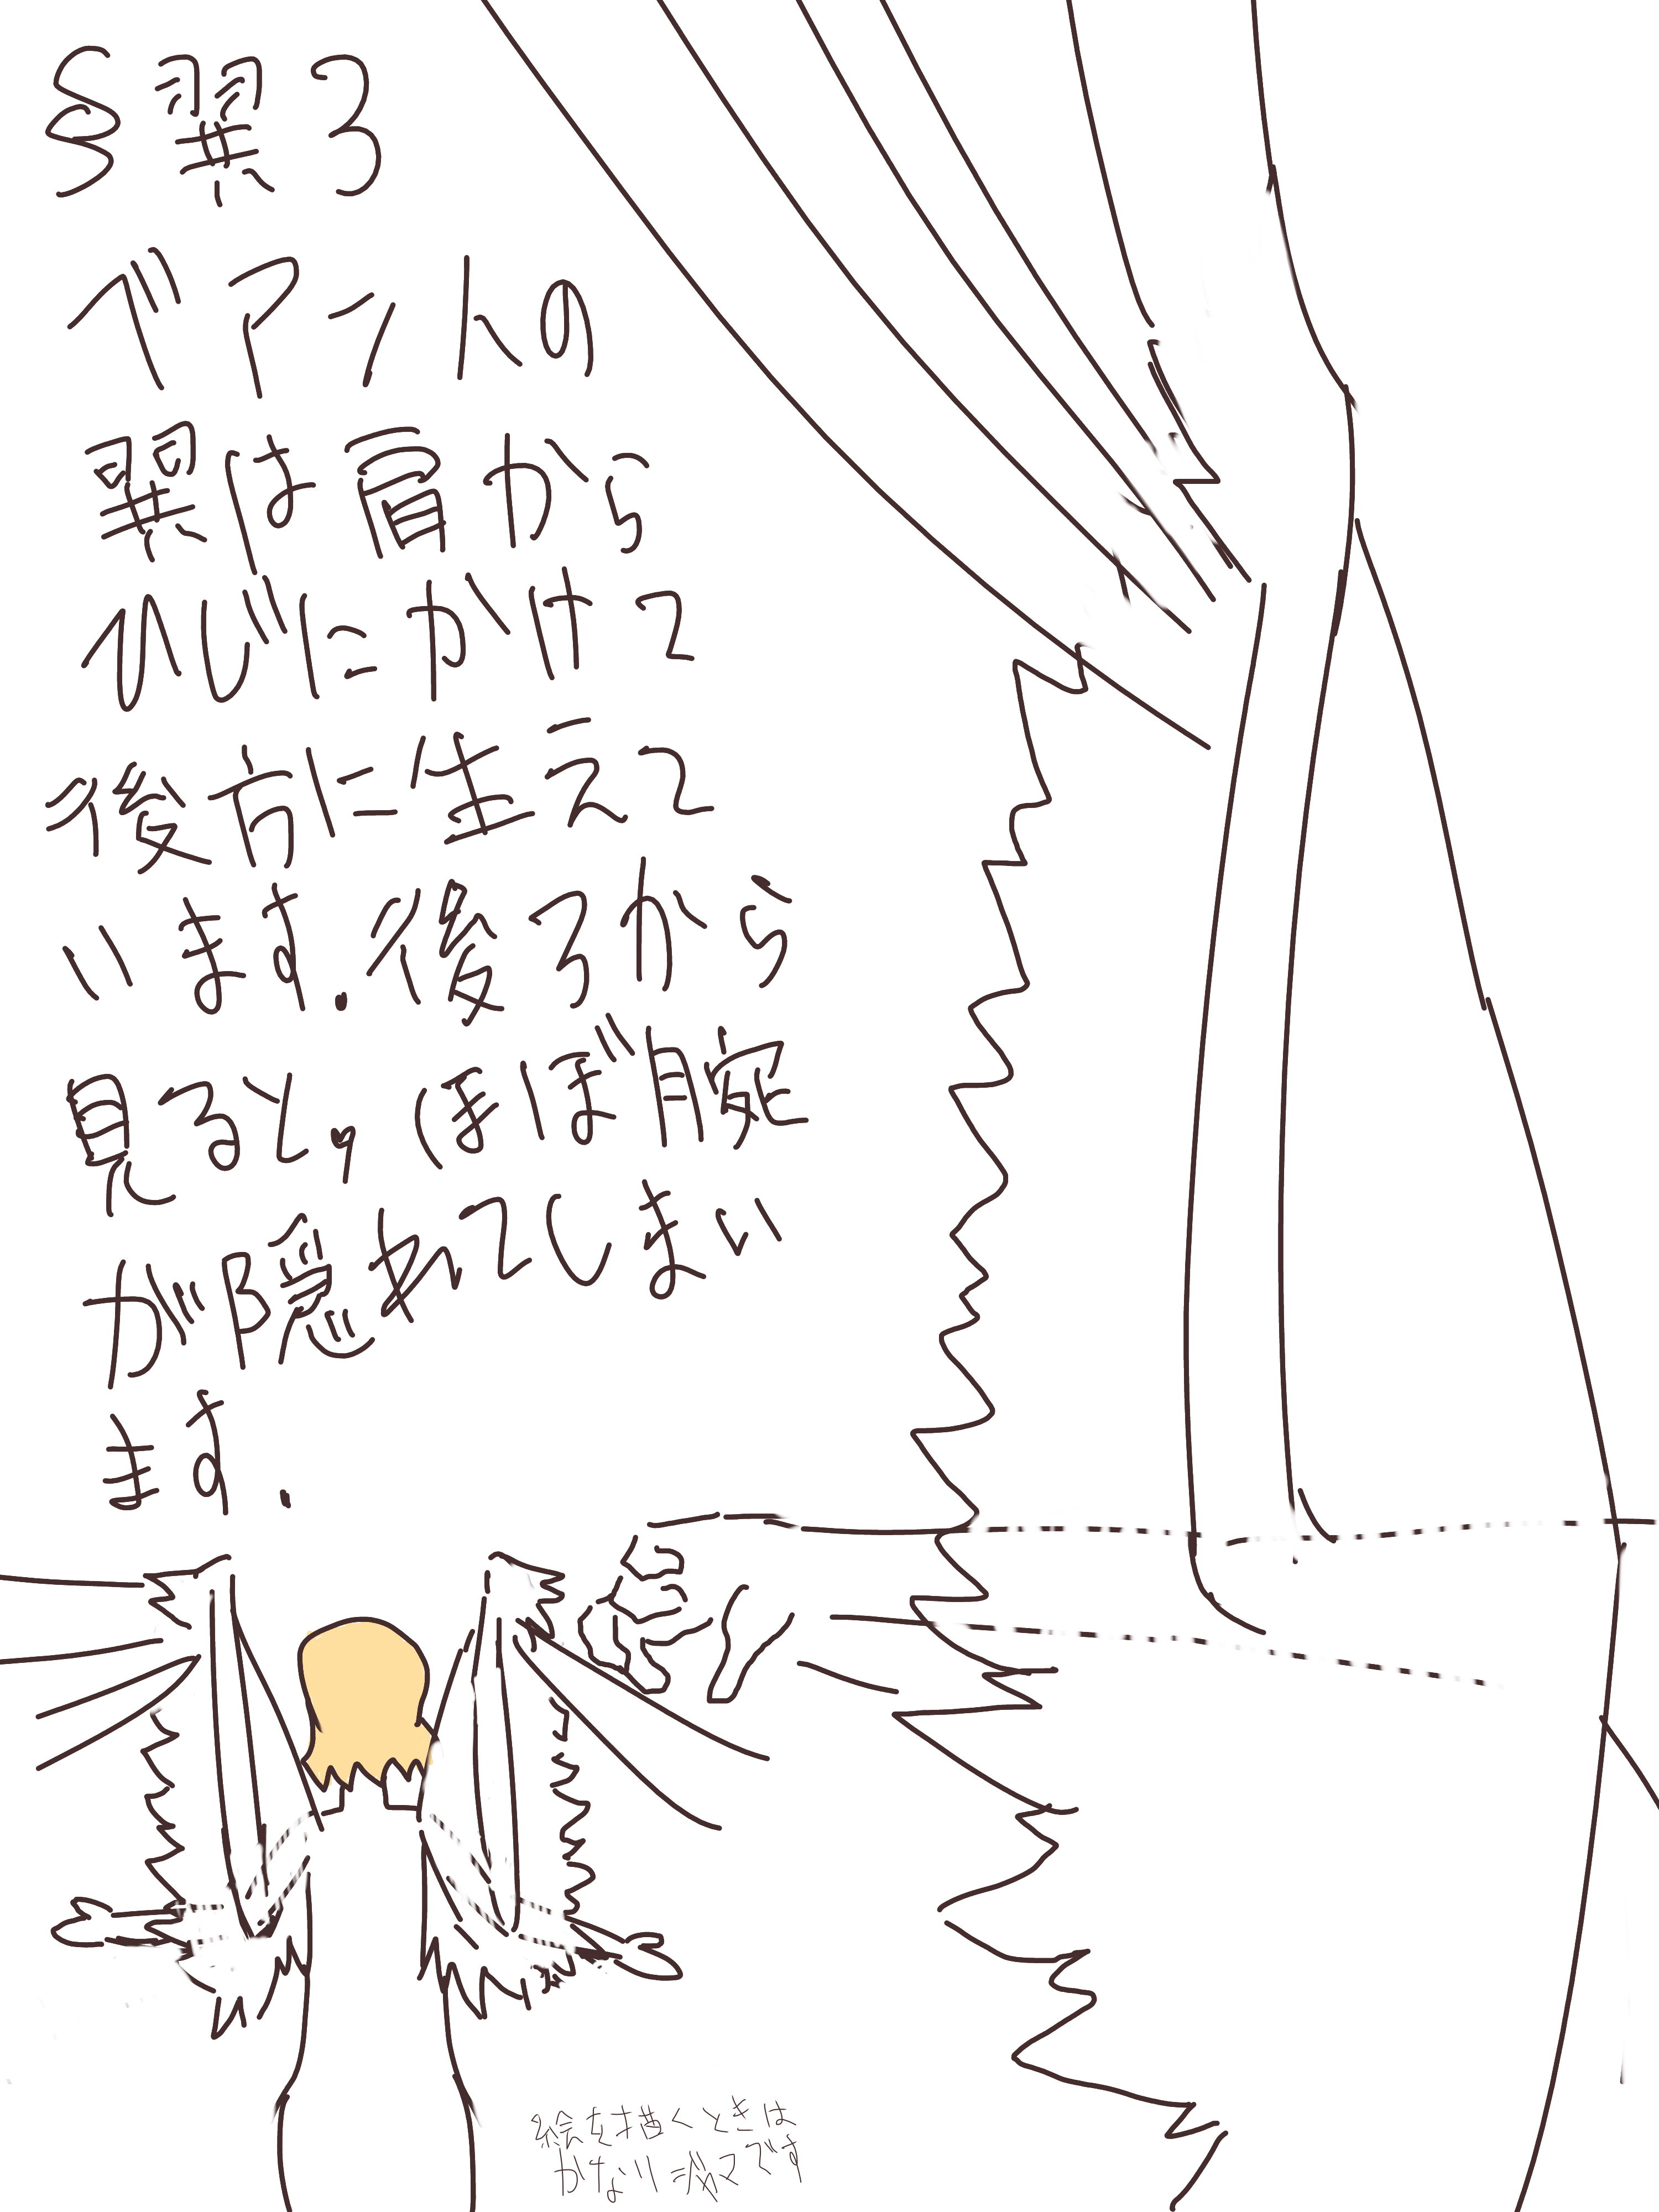 §翼3
ビアントの
翼は肩から
ひじにかけて
後方に生えて
います.後ろから
見ると,ほぼ腕
が隠れてしまい
ます.
絵を描くときは
かなり邪マです